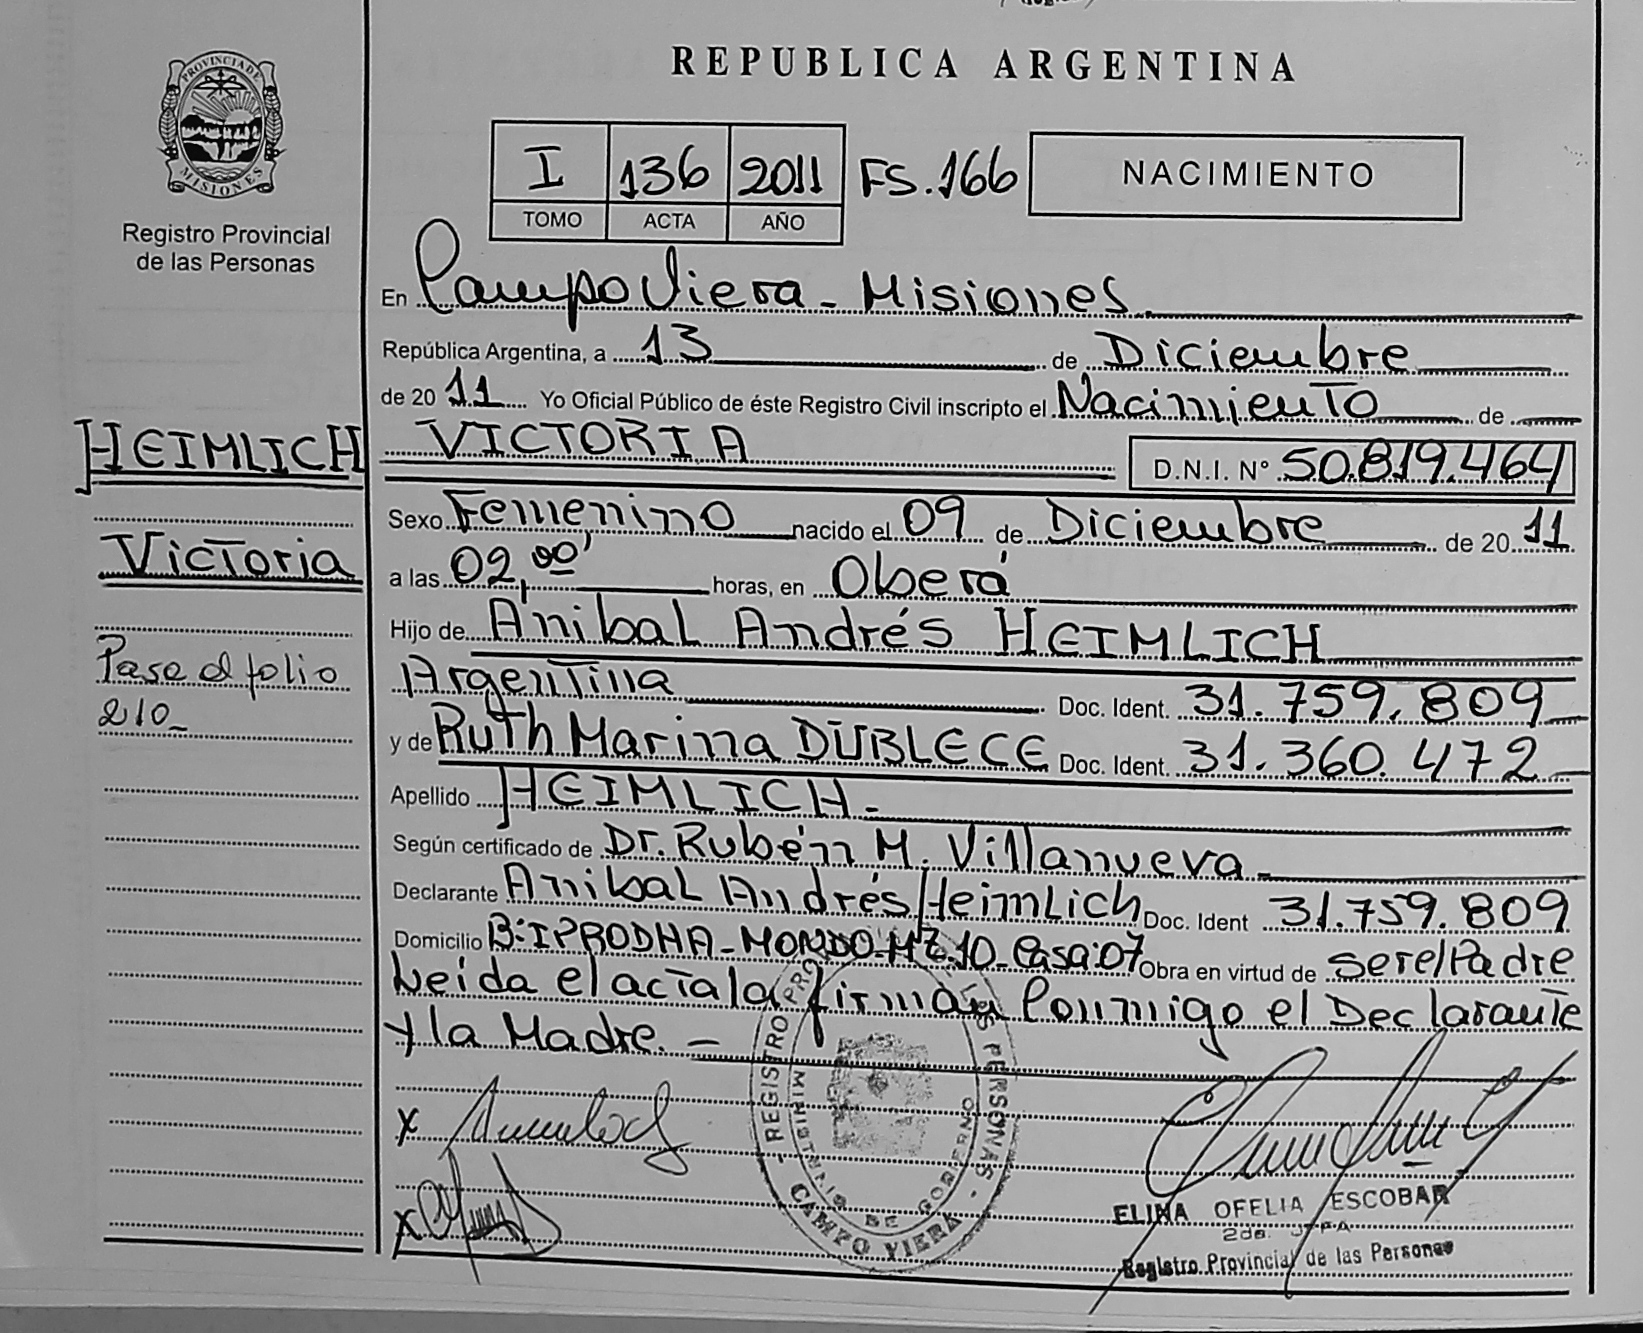 REPUBLICA ARGENTINA
PROVINCIA DE
MISIONES
Registro Provincial
de las Personas
I 136 2011 FS.166
TOMO ACTA AÑO
NACIMIENTO
En Campo Viera - Misiones
República Argentina, a 13 de Diciembre
de 20 11 Yo Oficial Público de éste Registro Civil inscripto el Nacimiento de
HEIMLICH
Victoria
Pase al folio
210-
VICTORIA D.N.I. N° 50.819.464
Sexo Femenino nacido el 09 de Diciembre de 20 11
a las 02,00' horas, en Oberá
Hijo de Aníbal Andrés HEIMLICH
Argentina Doc. Ident. 31.759.809
y de Ruth Marina DUBLECE Doc. Ident. 31.360.472
Apellido HEIMLICH -
Según certificado de Dr. Rubén M. Villanueva -
Declarante Anibal Andrés Heimlich Doc. Ident 31.759.809
Domicilio B: IPRODHA - MONDO - MZ.10 - Casa:07 Obra en virtud de ser el Padre
Leida el acta la firman Conmigo el Declarante
y la Madre. -
x
x
- REGISTRO PROVINCIAL DE LAS PERSONAS -
MINISTERIO DE GOBIERNO
CAMPO VIERA
ELINA OFELIA ESCOBAR
2da. JEFA
Registro Provincial de las Personas